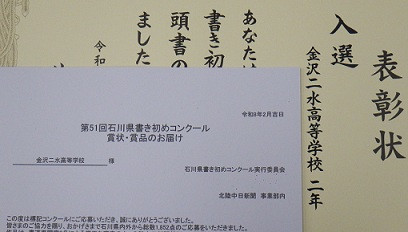 表彰状
入選
金沢二水高等学校 二年
あなたは
書き初
頭書の
ました
令和
令和8年2月吉日
第51回石川県書き初めコンクール
賞状・賞品のお届け
金沢二水高等学校 様
石川県書き初めコンクール実行委員会
北陸中日新聞 事業部内
この度は標記コンクールにご応募いただき、誠にありがとうございました。
皆さまのご協力を賜り、おかげさまで石川県内外から総数1,652点のご応募をいただきました。